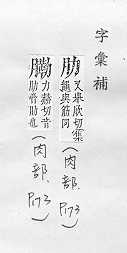 字彙補
肋 又舉欣切
與筋同
(肉部、P173)
力勑切音
肋骨肋也
(肉部、P173)